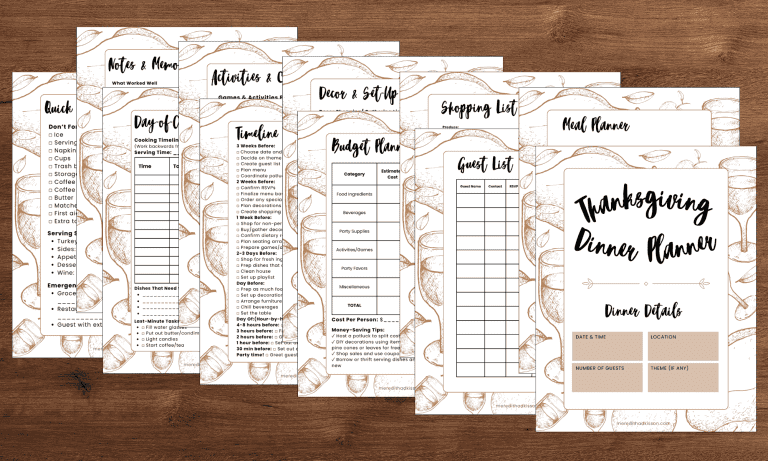 Quick
Don't
Ice
Cups
Storage
Coffee
Coffee
Butter
First
Extra
Serving
Turkey
Sides:
Wine:
Guest with
Notes & Memo
What Worked Well
Day-of
Cooking Timeline
(Work backwards
Serving Time:
Time
Dishes That Need
Last-Minute
Fill water glasses
Light candles
Start coffee/tea
Activities &
Games & Activities
Timeline
3 Weeks Before:
Choose date and
Decide on theme
Create guest list
Plan menu
Coordinate
2 Weeks Before:
Confirm RSVPs
Finalize menu
Order any
Plan decorations
Create shopping
1 Week Before:
Shop for
Buy/gather
Confirm
Plan seating
Prepare games/
2-3 Days Before:
Shop for fresh
Prep dishes that
Clean house
Set up playlist
Day Before:
Prep as much
Set up
Arrange
Chill beverages
Set the table
4-5 hours before:
3 hours before:
2 hours before:
1 hour before: Set out
30 min before: Set out
Party time! Great
Decor & Set-Up
Budget
Category
Cost
Food Ingredients
Beverages
Party Supplies
Activities/Games
Party Favors
Miscellaneous
TOTAL
Cost Per Person: $
Money-Saving Tips:
Host a potluck to split
DIY decorations using
pine cones or leaves for
Shop sales and use
Borrow or thrift serving dishes
new
Shopping List
Produce:
Guest List
Guest Name Contact RSVP
meredithadkisson
Meal Planner
Thanksgiving
Dinner Planner
Dinner Details
DATE & TIME
LOCATION
NUMBER OF GUESTS
THEME (IF ANY)
meredithadkisson.com